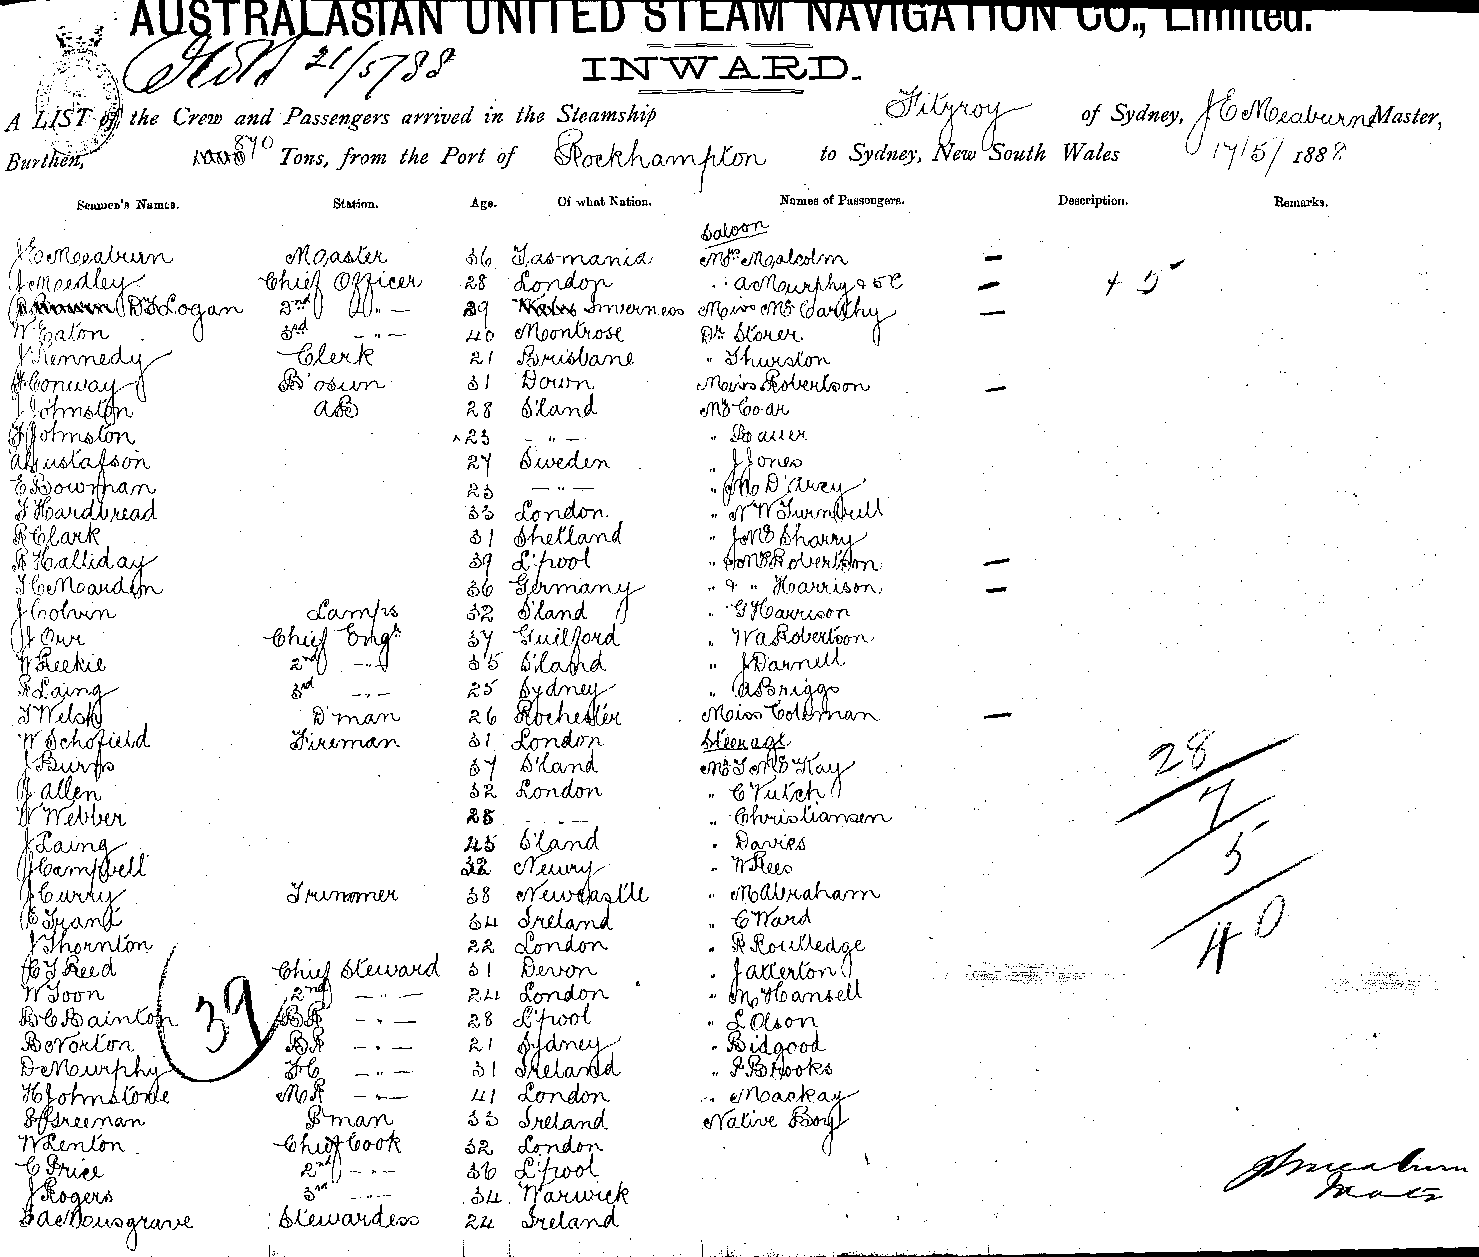 AUSTRALASIAN UNITED STEAM NAVIGATION CO., Limited.
21/5/88
INWARD.
A LIST of the Crew and Passengers arrived in the Steamship Fitzroy of Sydney, J E Meaburn Master,
Burthen, 870 Tons, from the Port of Rockhampton to Sydney, New South Wales 17/5/1888
Seamen's Names. Station. Age. Of what Nation. Names of Passengers. Description. Remarks.
Saloon
J E Meaburn Master 36 Tasmania Mrs Malcolm —
J Medley Chief Officer 28 London " A Murphy & 5 C — + 5
D S Logan 2nd " — 39 Inverness Miss McCarthy —
W Eaton 3rd — " — 40 Montrose Dr Storer
J Kennedy Clerk 21 Brisbane " Thurston
Conway B'osun 31 Down Miss Robertson —
J Johnston AB 28 S'land Mr Coar
J Johnston 23 — " — " Bauer
A Gustafson 27 Sweden " J Jones
E Bowman 23 — " — " M D'Arcy
T Hardbread 33 London " N W Turnbull
R Clark 31 Shetland " J McSharry
R Halliday 39 L'pool " Robertson —
H C Marden 36 Germany " & " Harrison —
J Colvin Lamps 32 S'land " G Harrison
J Orr Chief Engr 37 Guilford " W A Robertson
W Reekie 2nd — " — 35 S'land " J Darnell
R Laing 3rd — " — 25 Sydney " A Briggs
T Welsh D'man 26 Rochester Miss Coleman —
W Schofield Fireman 31 London Steerage
J Burns 37 S'land Mr T McKay 28
J Allen 32 London " C Vutch 7
W Webber 28 — " — " Christiansen
J Laing 45 S'land " Davies 5
J Campbell 32 Newry " W Rees
J Curry Trimmer 38 Newcastle " M Abraham
E Grant 34 Ireland " C Ward 40
J Thornton 22 London " R Routledge
C T Reed Chief Steward 31 Devon " J Atterton
W Toon 2nd — " — 24 London " M Hansell
B C Bainton 39 BR — " — 28 L'pool " L Olson
B Norton BR — " — 21 Sydney " Bidgood
D Murphy FC — " — 31 Ireland " F Brooks
H Johnstone MR — " — 41 London " Mackay
Greenan P'man 33 Ireland Native Boy
W Lenton Chief Cook 32 London
C Price 2nd — " — 36 L'pool
J Rogers 3rd — " — 34 Warwick
Musgrave Stewardess 24 Ireland
J E Meaburn
Master